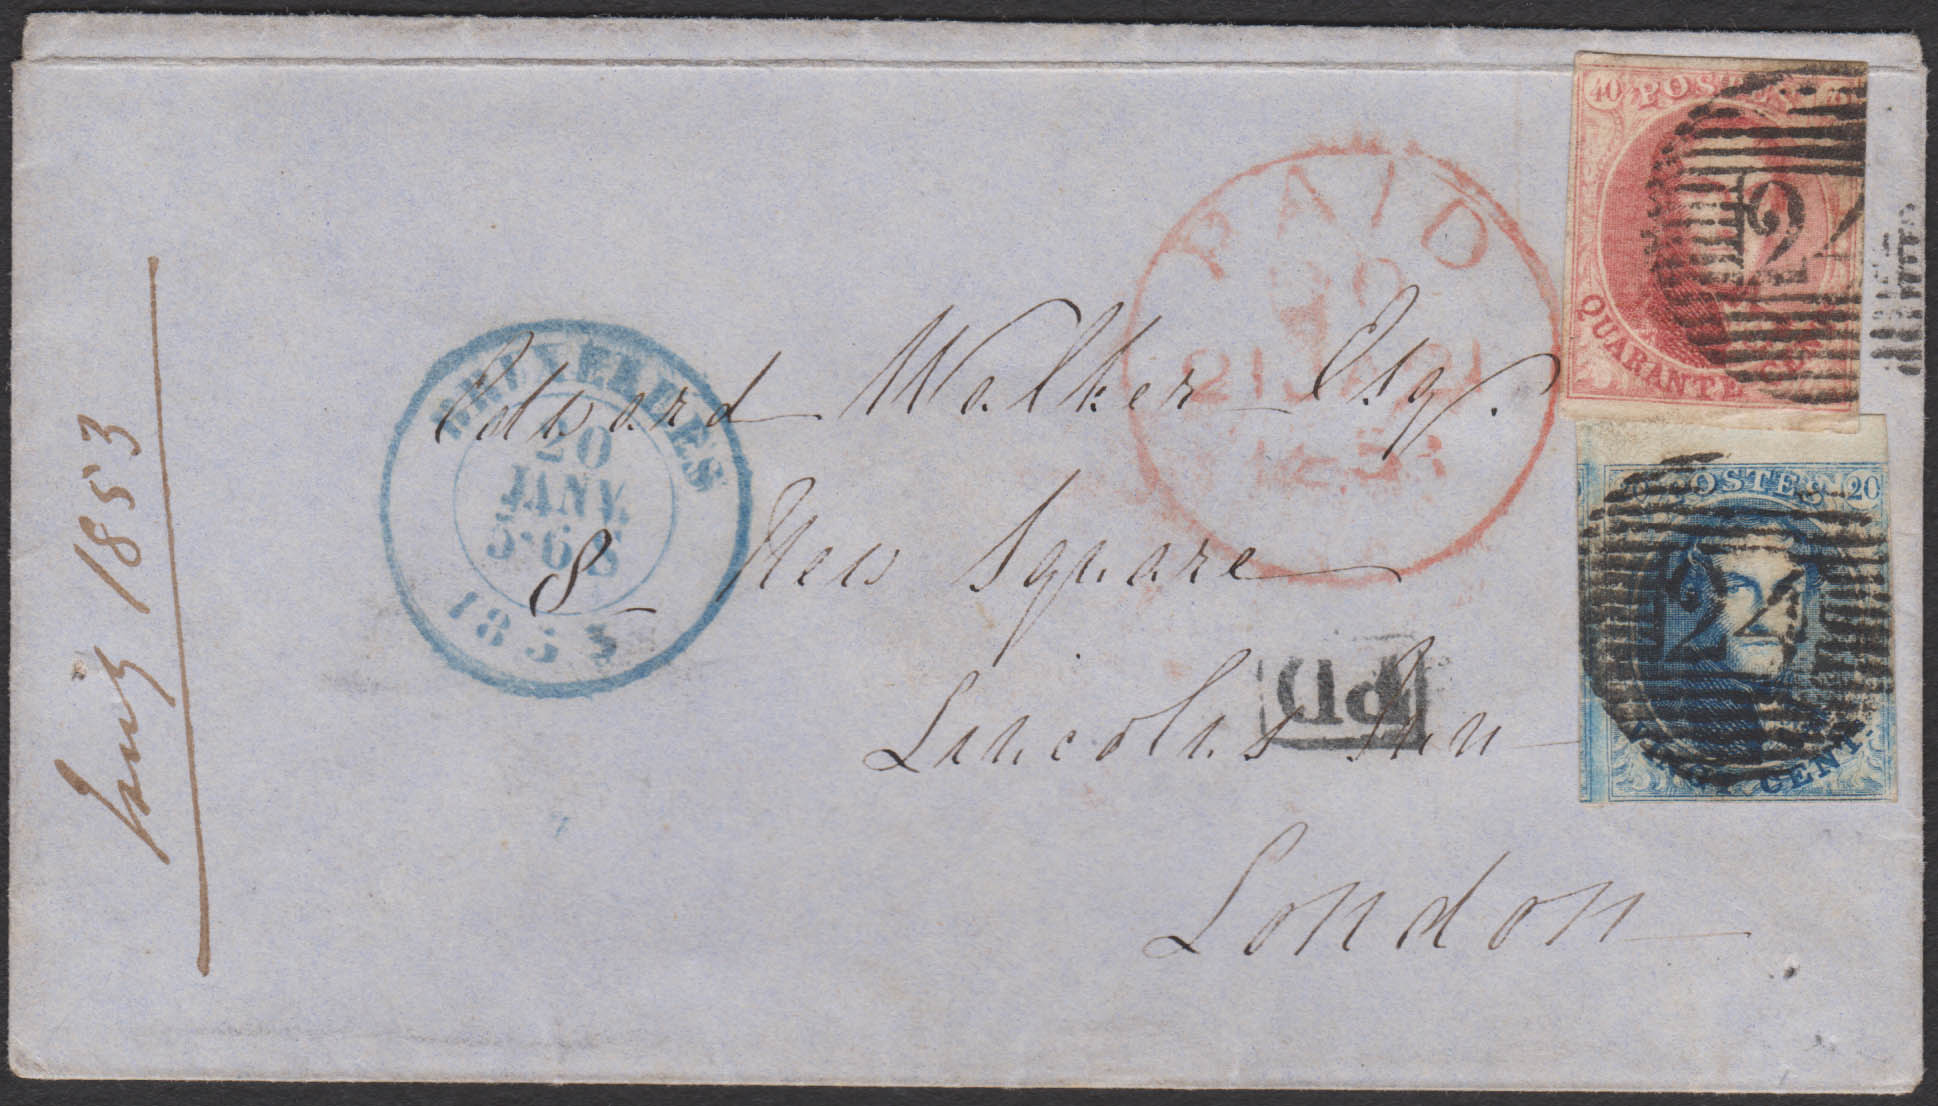 40 POSTES
24
QUARANTE CEN
POSTES 20
24
VINGT CENT.
PAID
21 JA 21
1853
BRUXELLES
20
JANV.
5-6 S
1853
Edward Walker Esq.
8 New Square
Lincolns Inn
London
PD
1853